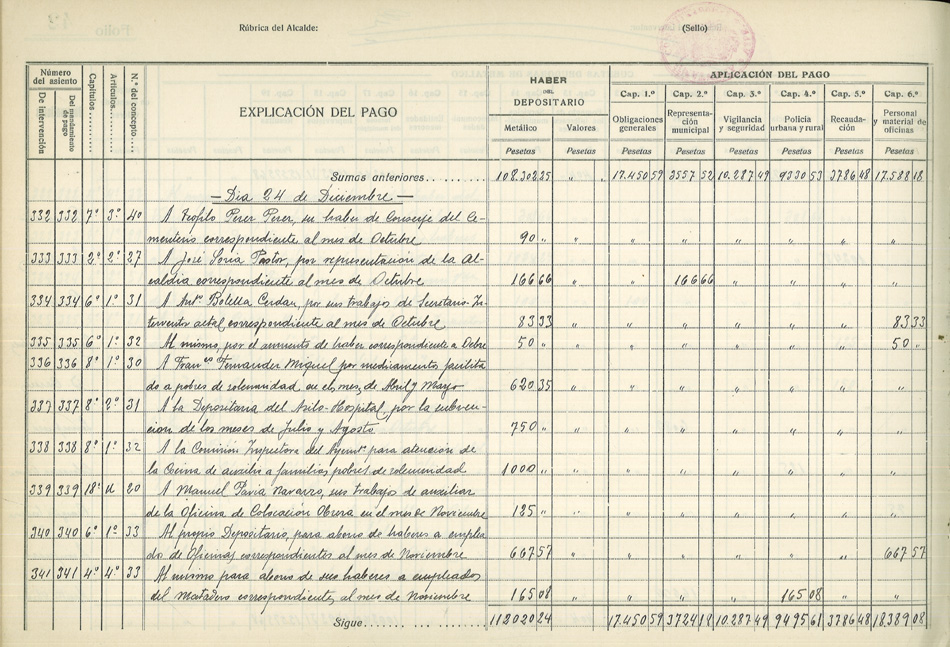 Rúbrica del Alcalde: (Sello)
Número del asiento Capítulos Artículos N.º del concepto EXPLICACIÓN DEL PAGO HABER DEL DEPOSITARIO APLICACIÓN DEL PAGO
De intervención Del mandamiento de pago Metálico Valores Cap. 1.º Cap. 2.º Cap. 3.º Cap. 4.º Cap. 5.º Cap. 6.º
Obligaciones generales Representación municipal Vigilancia y seguridad Policía urbana y rural Recaudación Personal y material de oficinas
Pesetas Pesetas Pesetas Pesetas Pesetas Pesetas Pesetas Pesetas
Sumas anteriores 108.302 25 " " 17.450 59 3557 52 10.287 49 9330 53 3786 48 17.588 18
— Dia 24 de Diciembre —
332 332 7º 3º 40 A Trofilo Perer Perer, su haber de Conserje del Ce-
menterio correspondiente al mes de Octubre 90 " " " " " " " "
333 333 2º 2º 27 A José Soria Pastor, por representacion de la Al-
caldia correspondiente al mes de Octubre 166 66 " " 166 66 " " " "
334 334 6º 1º 31 A Antº Botella Cerdan, por sus trabajos de Secretario-In-
terventor actal correspondiente al mes de Octubre 83 33 " " " " " " 83 33
335 335 6º 1º 32 Al mismo, por el aumento de haber correspondiente a Octbre 50 " " " " " " " 50 "
336 336 8º 1º 30 A Fran.co Fernander Miquel por medicamentos facilita
do a pobres de solemnidad en el mes, de Abril y Mayo 620 35 " " " " " " "
337 337 8º 2º 31 A la Depositaria del Asilo-Hospital, por la subven-
cion de los meses de Julio y Agosto 750 " " " " " " " "
338 338 8º 1º 32 A la Comisión Inspectora del Ayunt. para atencion de
la Cocina de auxilio a familias pobres de solemnidad 1000 " " " " " " " "
339 339 18º 20 A Manuel Pavia Navarro, sus trabajos de auxiliar
de la Oficina de Colocación Obrera en el mes de Noviembre 125 " " " " " " " "
340 340 6º 1º 33 Al propio Depositario, para abono de haberes a emplea
do de Oficinas correspondientes al mes de Noviembre 667 57 " " " " " " 667 57
341 341 4º 4º 33 Al mismo para abono de sus haberes a empleados
del Matadero correspondiente, al mes de Noviembre 165 08 " " " " 165 08 " "
Sigue 112020 24 17.450 59 3724 18 10.287 49 9495 61 3786 48 18.389 08